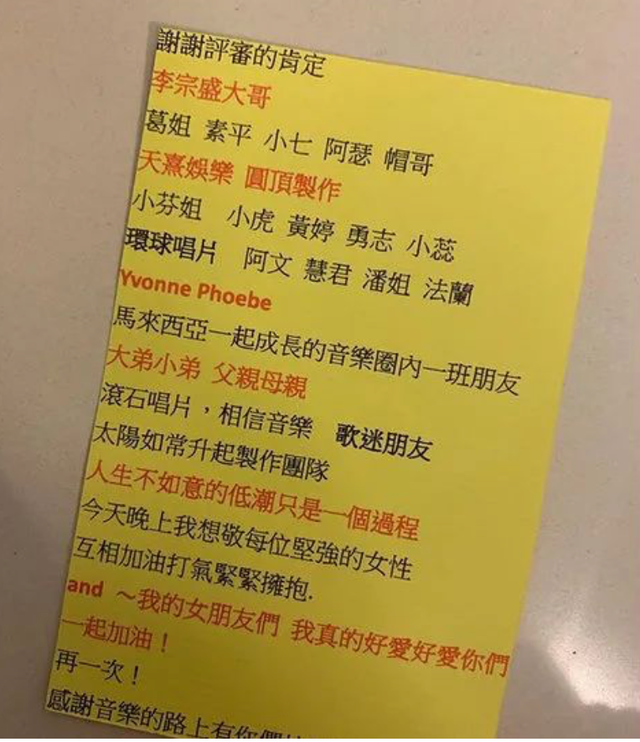 謝謝評審的肯定
李宗盛大哥
葛姐 素平 小七 阿瑟 帽哥
天熹娛樂 圓頂製作
小芬姐 小虎 黃婷 勇志 小蕊
環球唱片 阿文 慧君 潘姐 法蘭
Yvonne Phoebe
馬來西亞一起成長的音樂圈內一班朋友
大弟小弟 父親母親
滾石唱片，相信音樂 歌迷朋友
太陽如常升起製作團隊
人生不如意的低潮只是一個過程
今天晚上我想敬每位堅強的女性
互相加油打氣緊緊擁抱.
and ～我的女朋友們 我真的好愛好愛你們
一起加油！
再一次！
感謝音樂的路上有你們